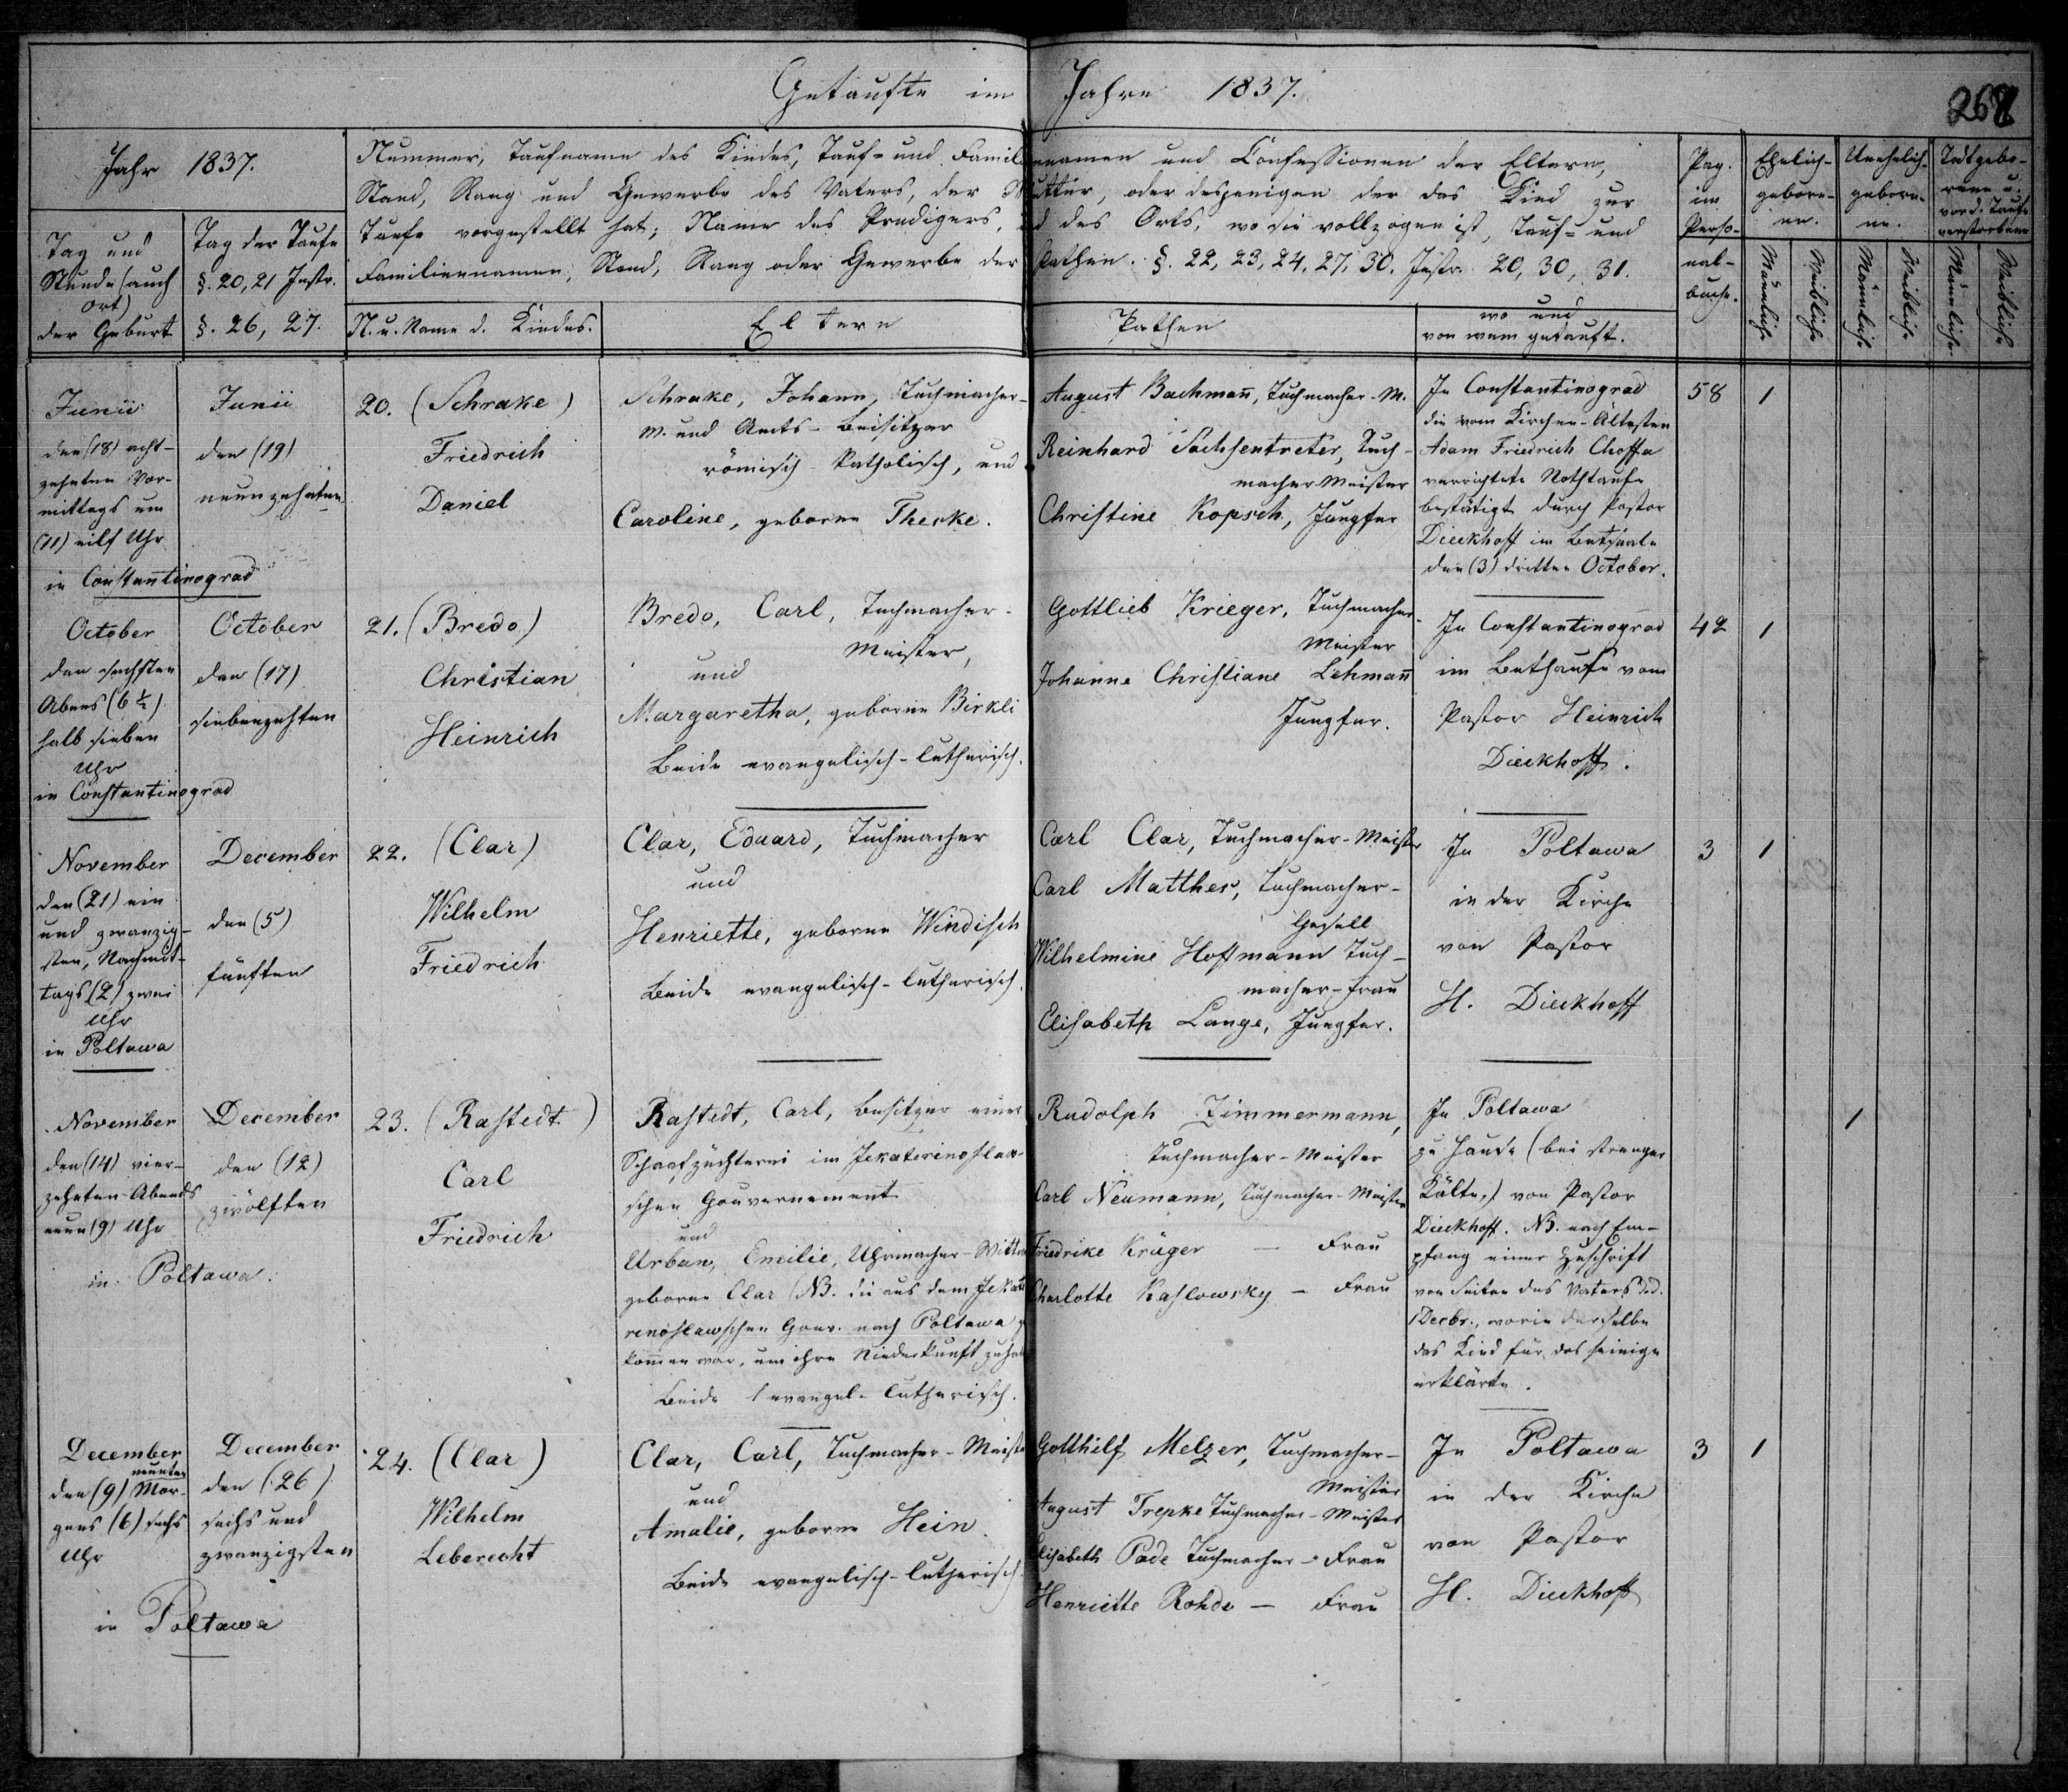 Getaufte im Jahre 1837.
268
Jahr 1837.
Tag und
Stunde (auch
Ort)
der Geburt
Tag der Taufe
§. 20, 21 Instr.
§. 26, 27.
Nummer, Taufname des Kindes, Tauf- und Familiennamen und Confessionen der Eltern,
Stand, Rang und Gewerbe des Vaters, der Mutter, oder desjenigen der das Kind zur
Taufe vorgestellt hat; Name des Predigers, und des Orts, wo sie vollzogen ist, Tauf- und
Familiennamen, Stand, Rang oder Gewerbe der Pathen. §. 22, 23, 24, 27, 30. Instr. 20, 30, 31.
N. u. Name d. Kindes.
Eltern
Pathen
wo und
von wem getauft.
Pag.
im
Perso-
nal-
buche.
Ehelich-
gebore-
ne.
Unehelich-
gebore-
ne.
Todtgebo-
rene u.
vor d. Taufe
verstorbene
Männliche
Weibliche
Männliche
Weibliche
Männliche
Weibliche
Junii
den (18) acht-
zehnten Vor-
mittags um
(11) eilf Uhr
in Constantinograd
Junii
den (19)
neunzehnten
20. (Schrake)
Friedrich
Daniel
Schrake, Johann, Tuchmacher-
M. und Amts-Beisitzer
römisch-katholisch, und
Caroline, geborne Theske.
August Bachmañ, Tuchmacher-M.
Reinhard Sachsentreter, Tuch-
macher Meister
Christine Kopsch, Jungfer
In Constantinograd
die vom Kirchen-Ältesten
Adam Friedrich Choffa
verrichtete Nothtaufe
bestätigt durch Pastor
Dieckhoff im Betsaale
den (3) dritten October.
58 1
October
den sechsten
Abens (6½)
halb sieben
Uhr
in Constantinograd
October
den (17)
siebenzehten
21. (Bredo)
Christian
Heinrich
Bredo, Carl, Tuchmacher-
Meister,
und
Margaretha, geborne Birkli
Beide evangelisch-lutherisch.
Gottlieb Krieger, Tuchmacher-
Meister
Johanne Christiane Lehmañ
Jungfer.
In Constantinograd
im Bethause vom
Pastor Heinrich
Dieckhoff.
42 1
November
den (21) ein
und zwanzig-
sten, Nachmit-
tags (2) zwei
Uhr
in Poltawa
December
den (5)
fünften
22. (Clar)
Wilhelm
Friedrich
Clar, Eduard, Tuchmacher
und
Henriette, geborne Windisch
Beide evangelisch-lutherisch.
Carl Clar, Tuchmacher-Meister
Carl Matthes, Tuchmacher-
Gesell
Wilhelmine Hoffmann Tuch-
macher-Frau
Elisabeth Lange, Jungfer.
In Poltawa
in der Kirche
von Pastor
H. Dieckhoff
3 1
November
den (14) vier-
zehnten Abends
neun (9) Uhr
in Poltawa.
December
den (12)
zwölften
23. (Rastedt)
Carl
Friedrich
Rastedt, Carl, Besitzer einer
Schaafzüchterei im Jekaterinoslaw-
schen Gouvernement
und
Urban, Emilie, Uhrmacher-Wittwe
geborne Clar (NB. die aus dem Jekate
rinoslawschen Gouv. nach Poltawa ge
kom̃en war, um ihre Niederkunft zu halten
Beide evangel-lutherisch.
Rudolph Zimmermann,
Tuchmacher-Meister
Carl Neumann, Tuchmacher-Meister
Friedrike Krüger — Frau
Charlotte Kaslowsky — Frau
In Poltawa
zu Hause (bei strenger
Kälte,) von Pastor
Dieckhoff. NB. nach Em-
pfang einer Zuschrift
von Seiten des Vaters d.d.
1 Decbr., worin derselbe
das Kind für das seinige
erklärte.
1
December
neunten
den (9) Mor-
gens (6) sechs
Uhr
in Poltawa
December
den (26)
sechs und
zwanzigsten
24. (Clar)
Wilhelm
Leberecht
Clar, Carl, Tuchmacher-Meister
und
Amalie, geborne Hein.
Beide evangelisch-lutherisch.
Gotthilf Melzer, Tuchmacher-
Meister
August Trepke Tuchmacher-Meister
Elisabeth Pade Tuchmacher-Frau
Henriette Rohde — Frau
In Poltawa
in der Kirche
von Pastor
H. Dieckhoff
3 1